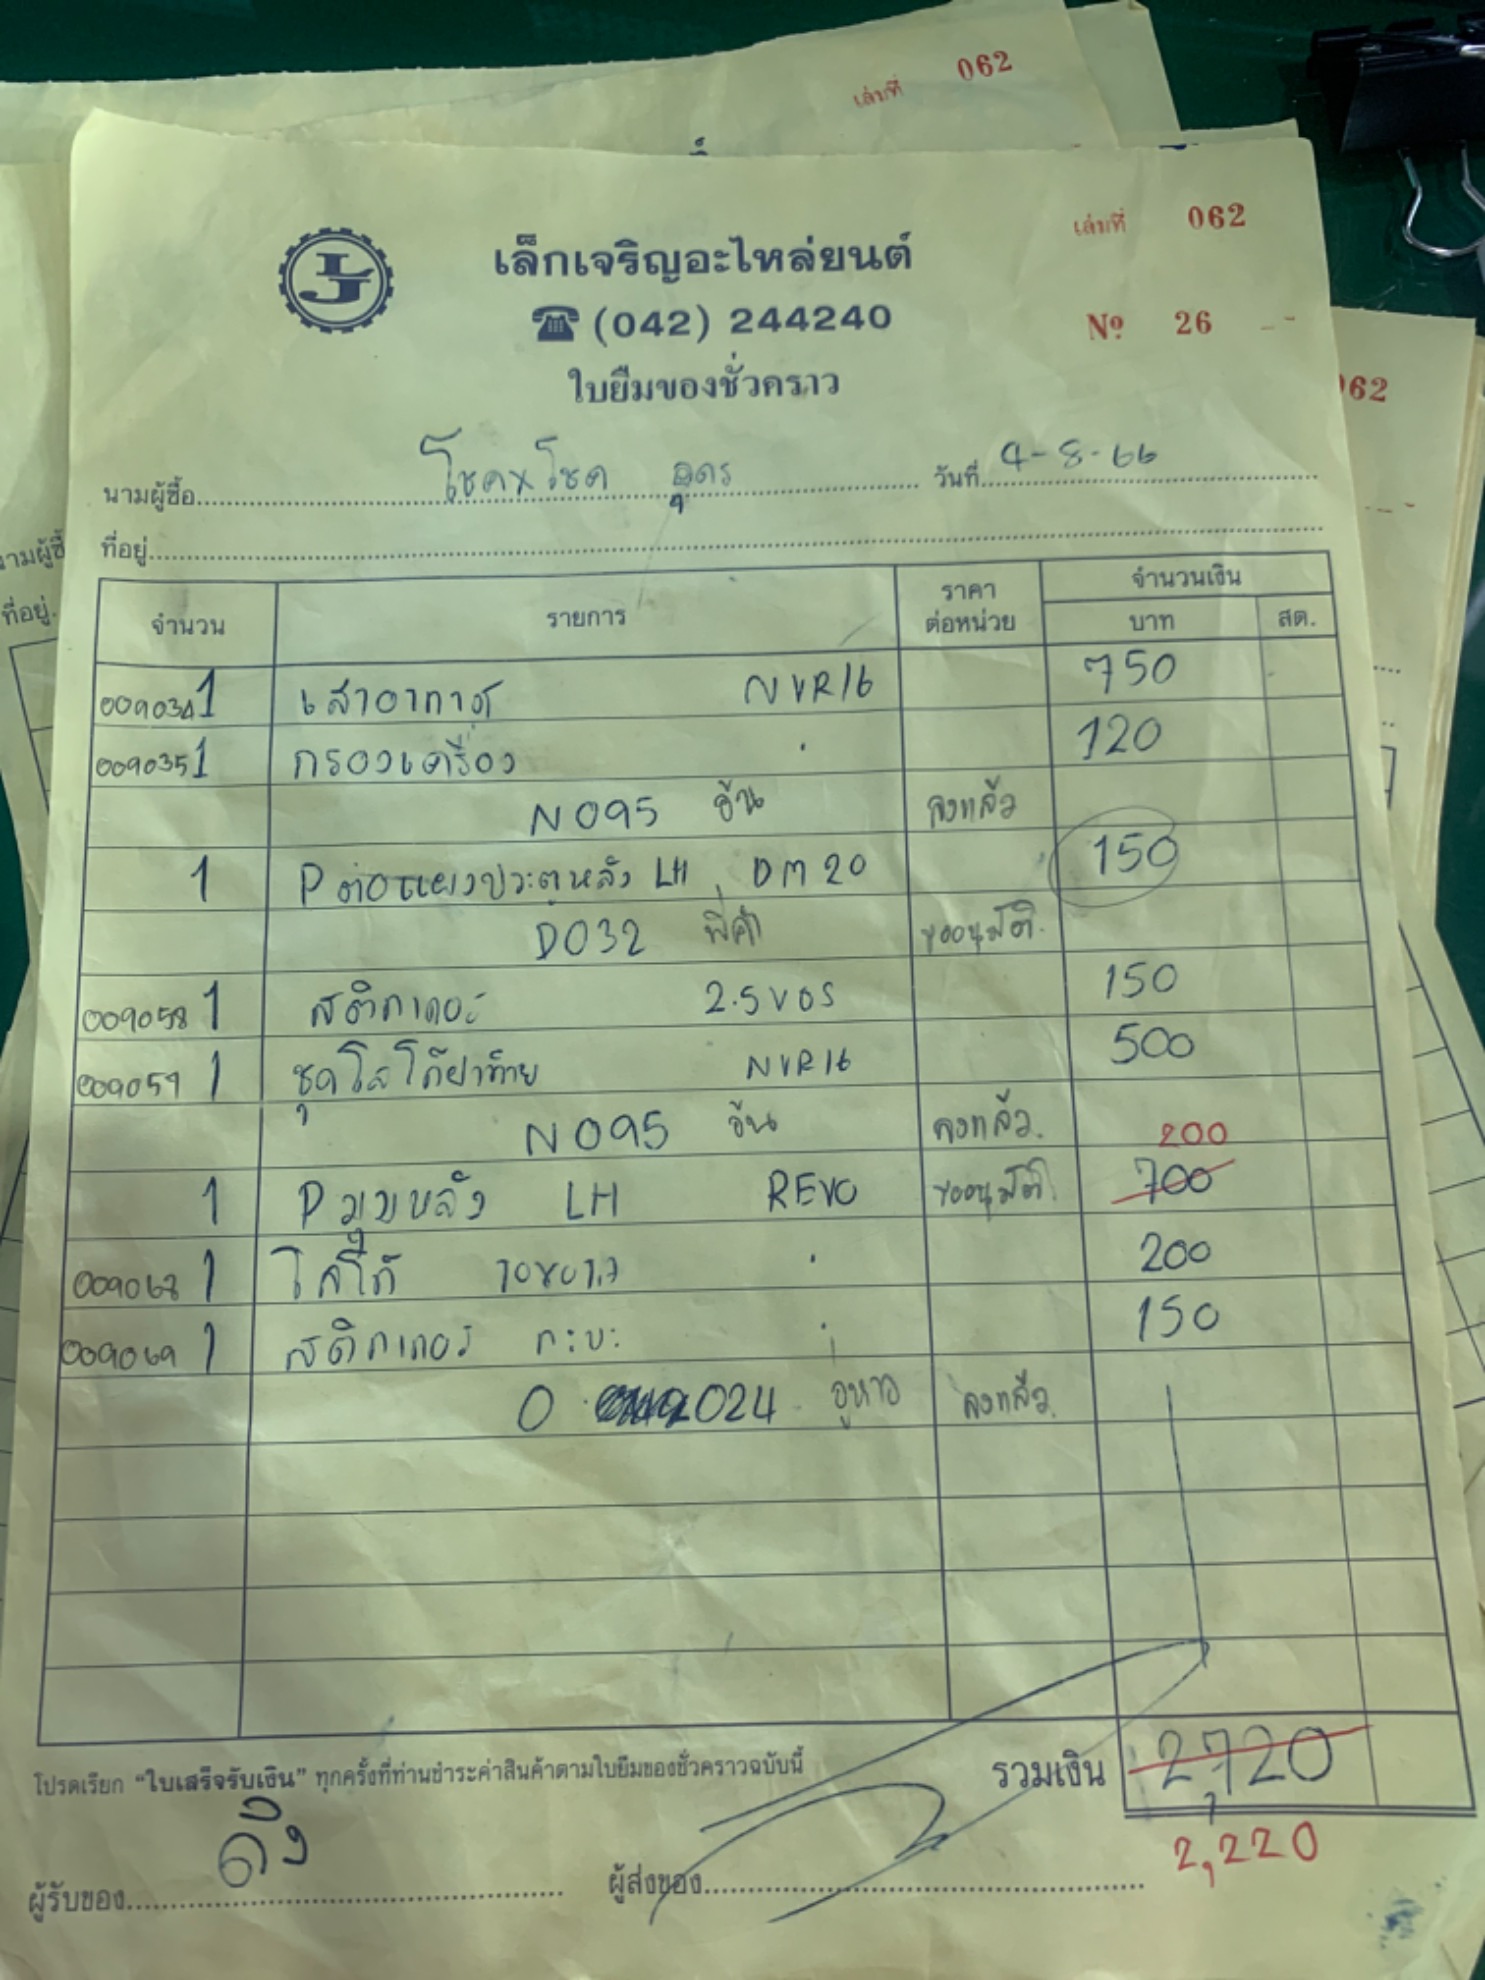 เล่มที่ 062
เล่มที่ 062
เล็กเจริญอะไหล่ยนต์
(042) 244240
Nº 26
062
ใบยืมของชั่วคราว
นามผู้ซื้อ โชคxโชค อุดร วันที่ 4-8-66
ที่อยู่
จำนวน รายการ ราคาต่อหน่วย จำนวนเงิน
บาท สต.
009034 1 เสาอากาศ NVR16 750
009035 1 กรองเครื่อง 120
N095 อ้น ลงแล้ว
1 P ต่อแผงประตูหลัง LH DM20 150
D032 พี่ศา ขออนุมัติ.
009058 1 สติกเกอร์ 2.5VGS 150
009059 1 ชุดโลโก้ฝาท้าย NVR16 500
N095 อ้น ลงแล้ว. 200
1 P มุมหลัง LH REVO ขออนุมัติ. 700
009068 1 โลโก้ 200
009069 1 สติกเกอร์ กะบะ 150
024 อู่หาว ลงแล้ว.
โปรดเรียก “ใบเสร็จรับเงิน” ทุกครั้งที่ท่านชำระค่าสินค้าตามใบยืมของชั่วคราวฉบับนี้ รวมเงิน 2,720
2,220
ผู้รับของ ดึง ผู้ส่งของ